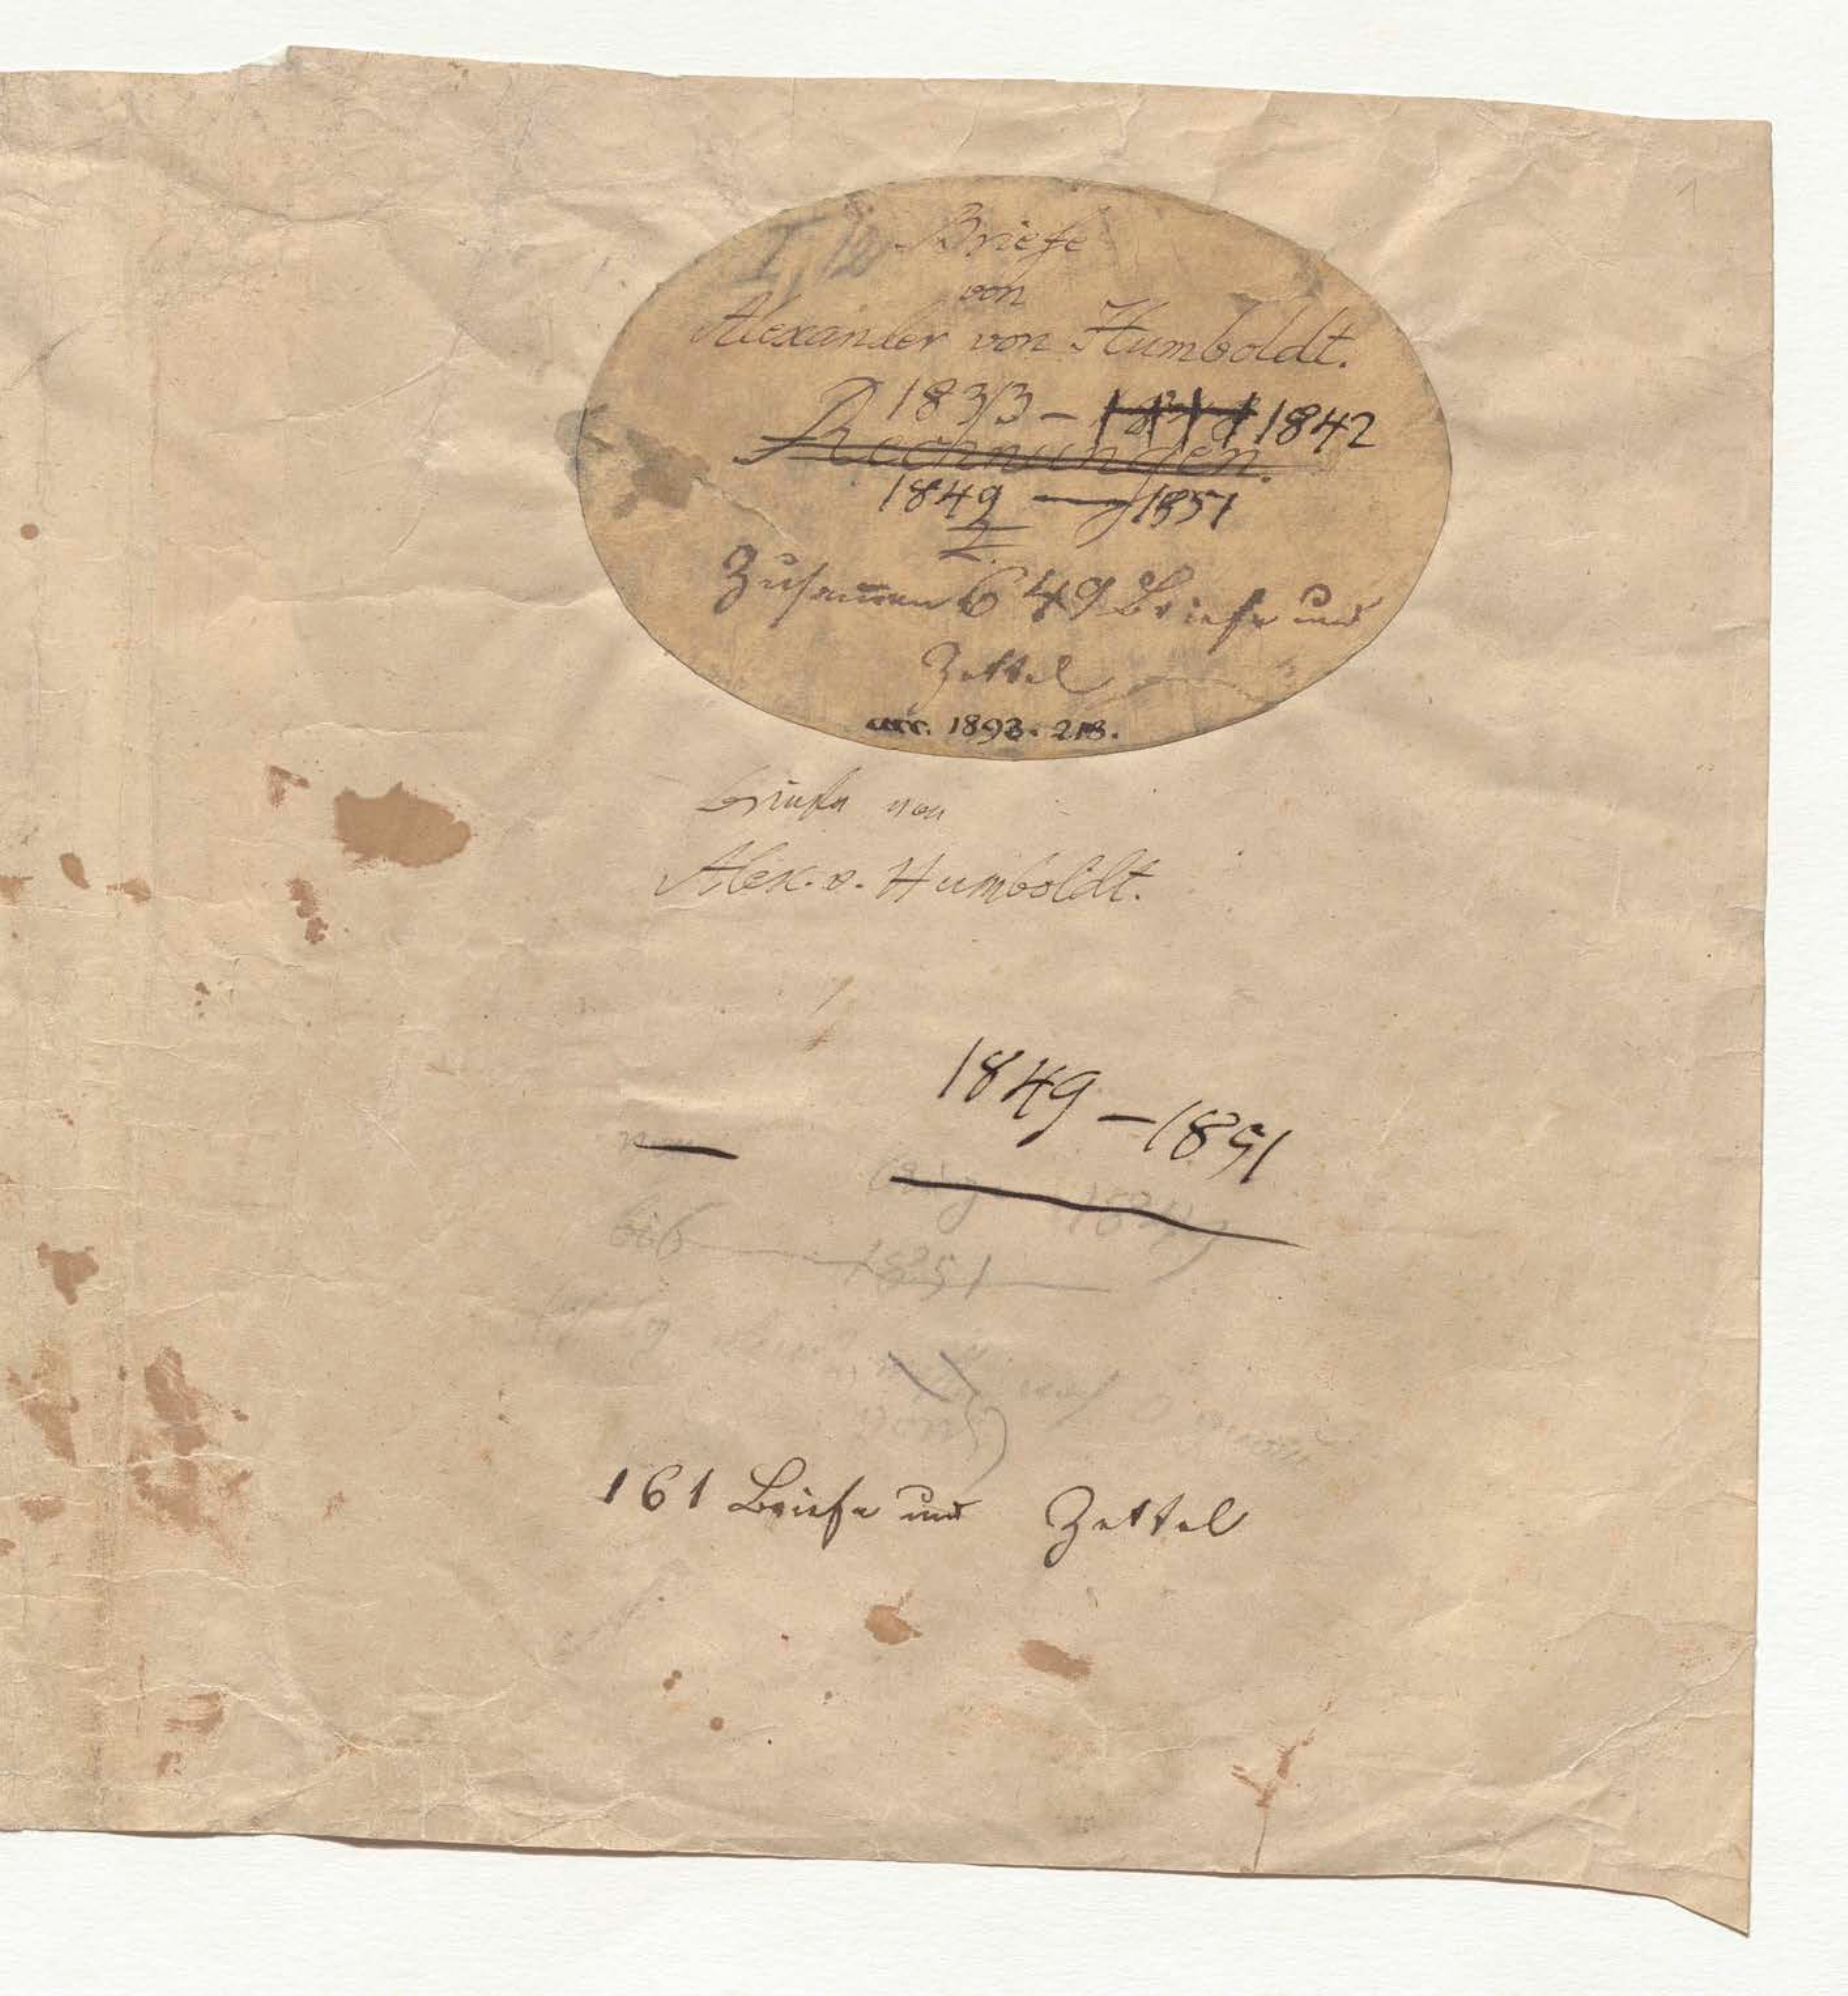 1
I, 12
Briefe
von
Alexander von Humboldt.
1833 – 1842
Rechnungen.
1849 — 1851
Zusam̅en 649 Briefe und
Zettel
acc. 1893. 218.
Briefe von
Alex. v. Humboldt.
1849 – 1851
1849
bis 1851
161 Briefe und Zettel